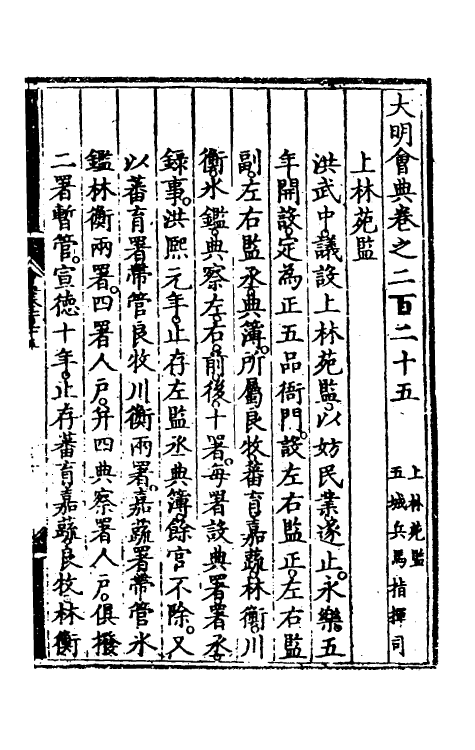 大明會典卷之二百二十五
上林苑監
五城兵馬指揮司
上林苑監
洪武中。議設上林苑監。以妨民業遂止。永樂五
年開設。定為正五品衙門。設左右監正。左右監
副。左右監丞。典簿。所屬良牧。蕃育。嘉蔬。林衡。川
衡。氷鑑。典察左。右。前。後。十署。每署設典署署丞
錄事。洪熙元年。止存左監丞典簿。餘官不除。又
以蕃育署帶管良牧川衡兩署。嘉蔬署帶管氷
鑑林衡兩署。四署人戶。幷四典察署人戶。俱撥
二署暫管。宣德十年。止存蕃育嘉蔬良牧林衡